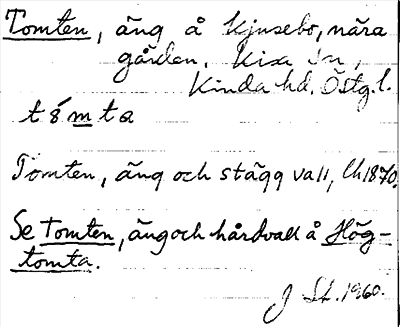 Tomten, äng å Kjusebo, nära
gården. Kisa sn,
Kinda hd. Östg.l.
tómta
Tomten, äng och stägg vall, Ch 1870.
Se Tomten, äng och hårdvall å Hög-
tomta.
J St. 1960.